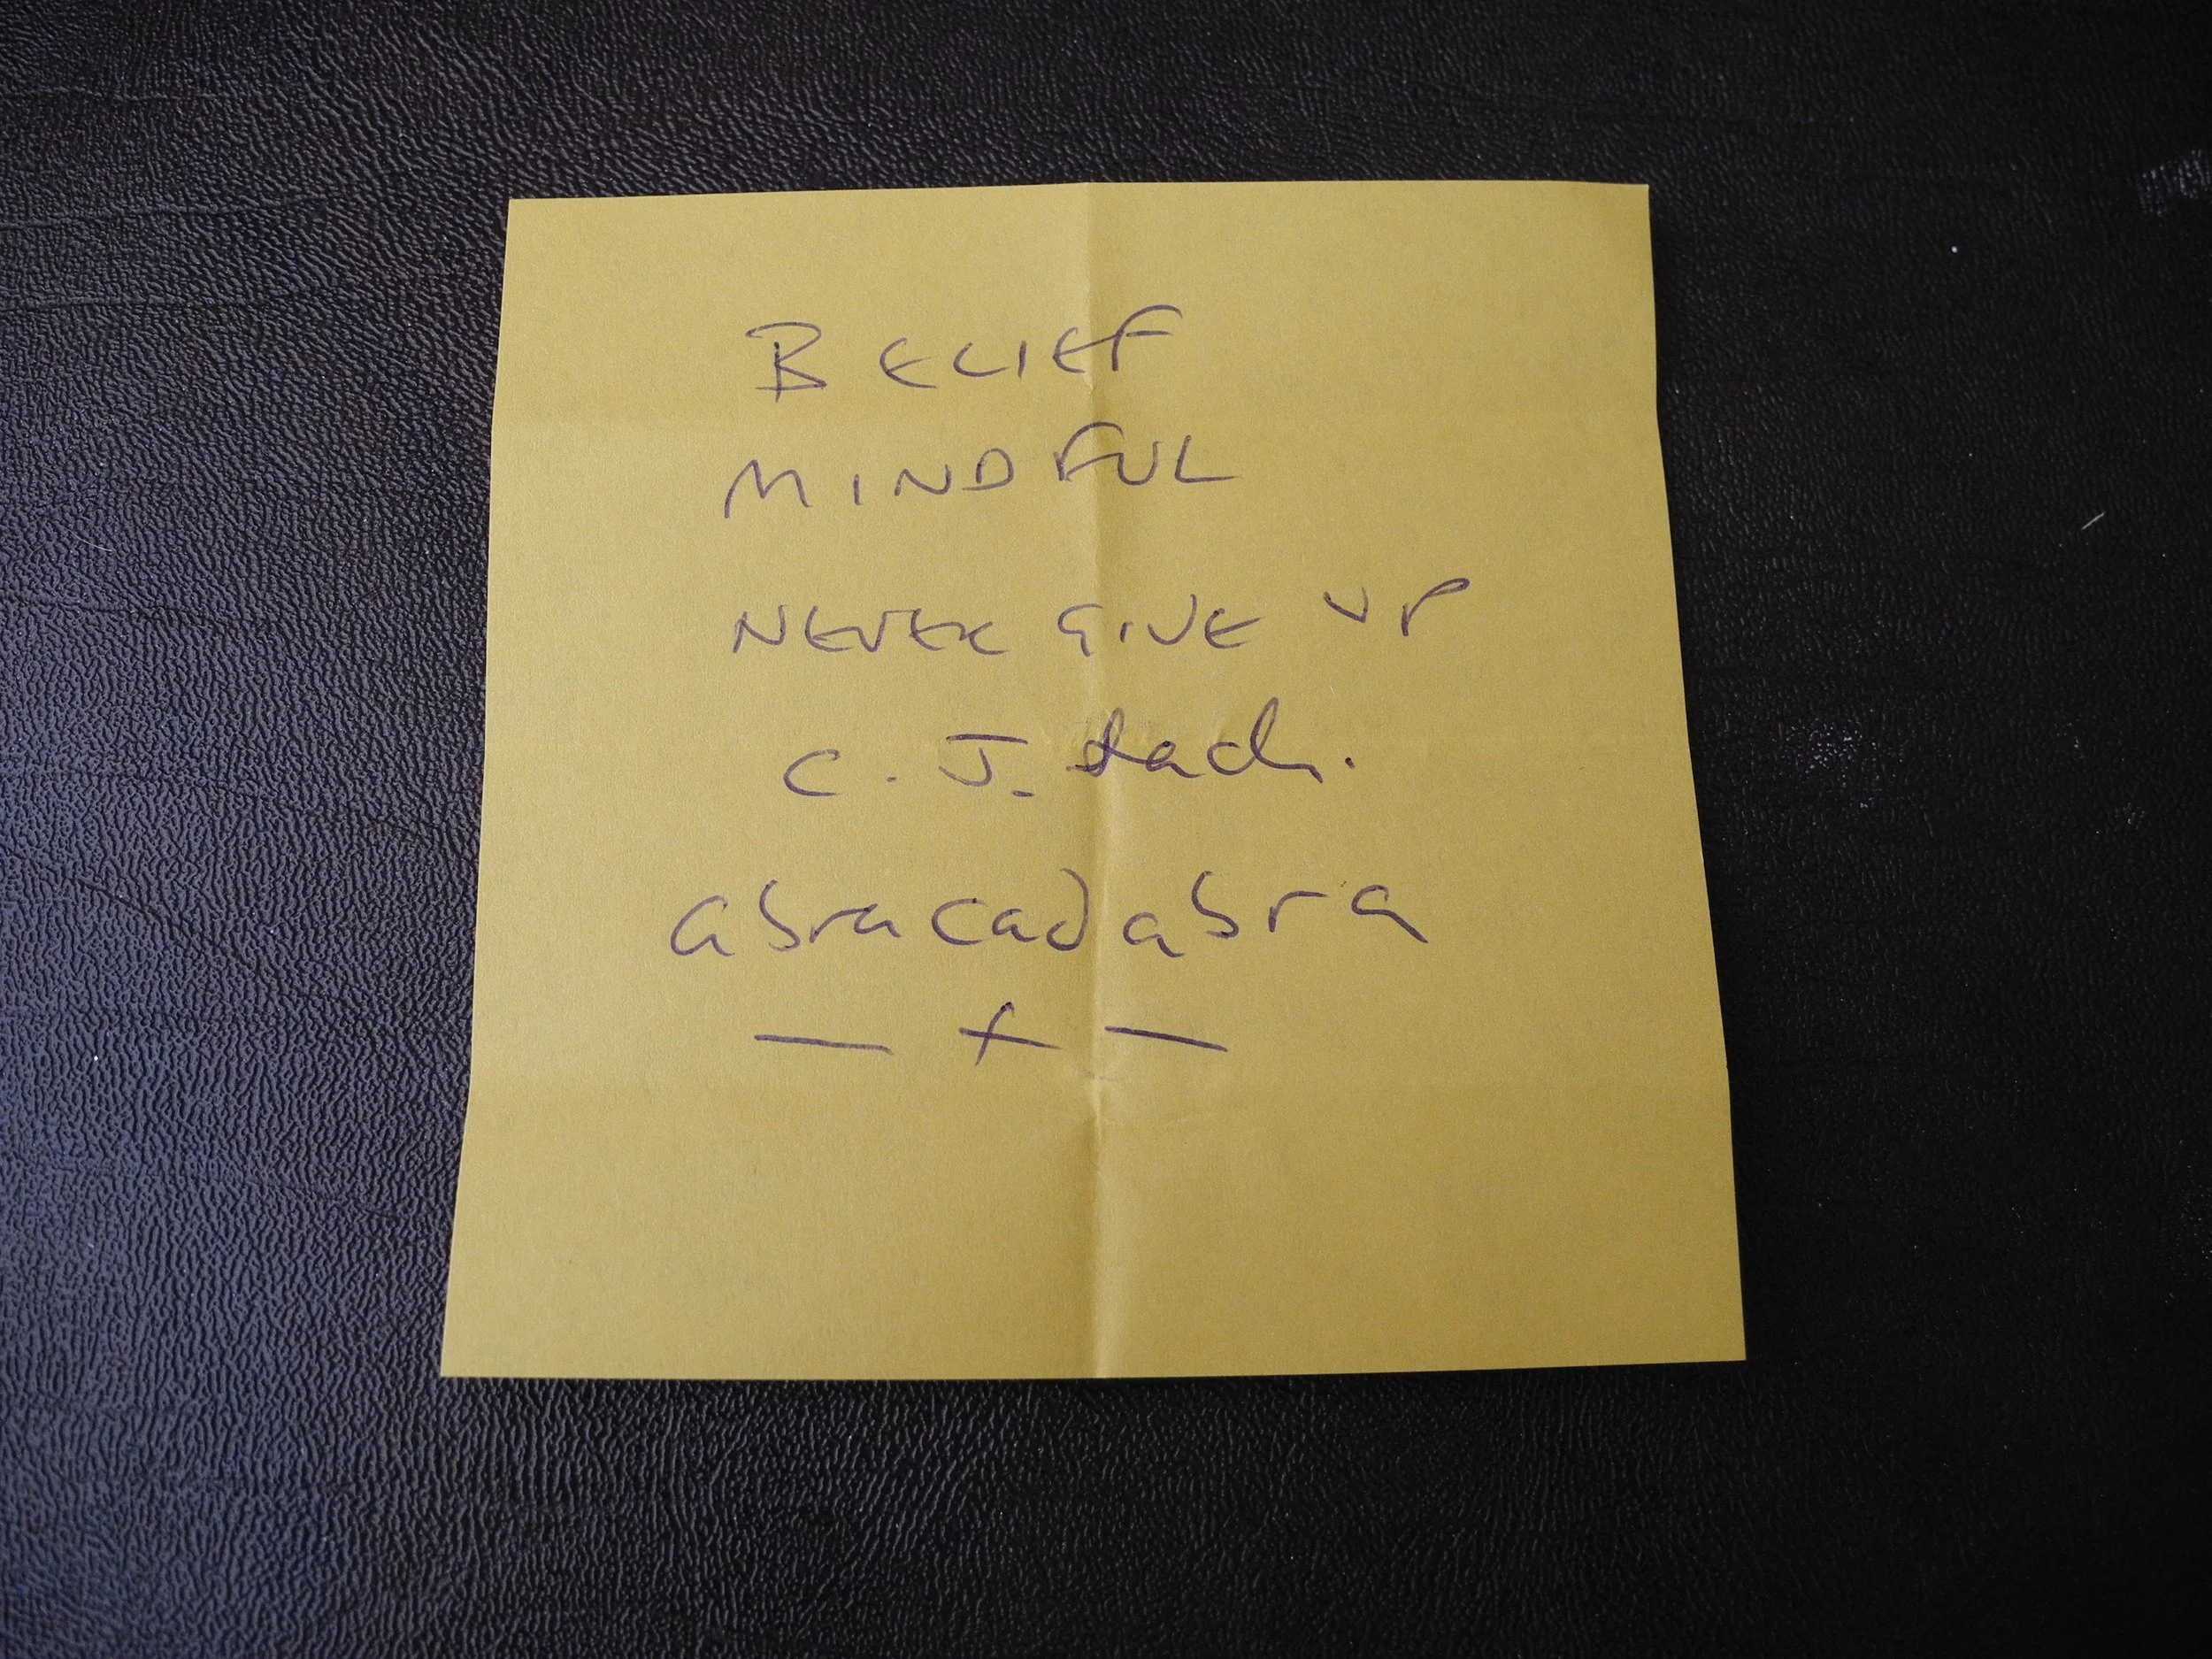 BELIEF
MINDFUL
NEVER GIVE UP
C. J.
abracadabra
— + —